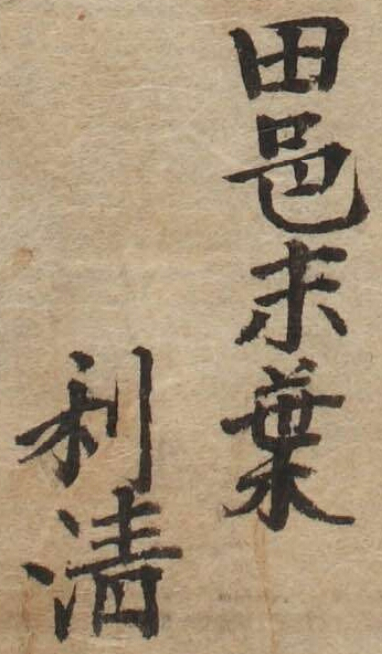 田邑末葉
利清